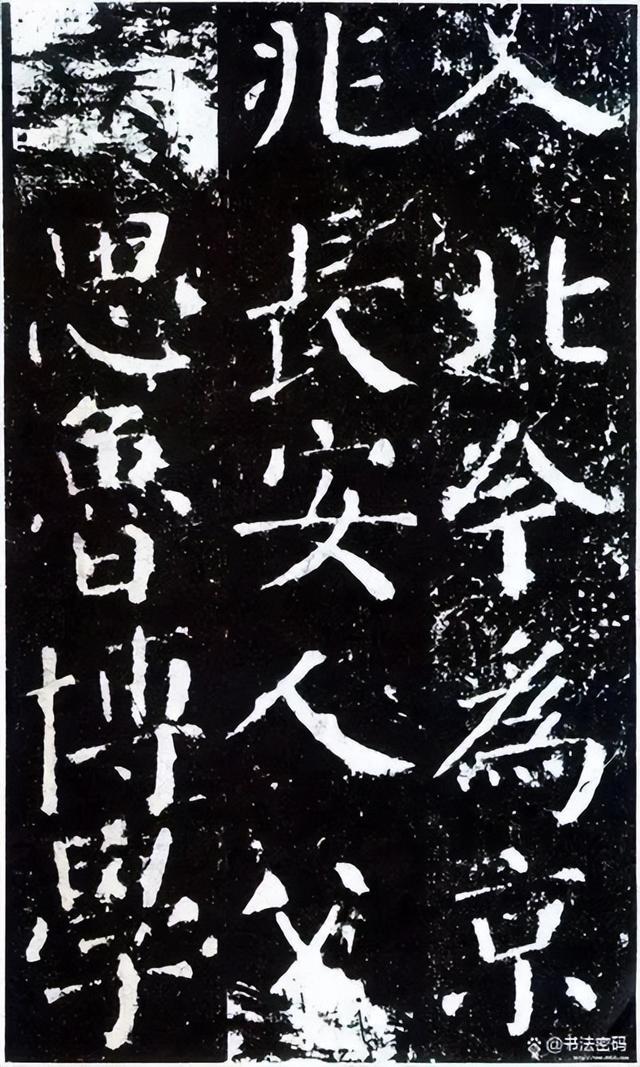 入北今為京
兆長安人父
思魯博學
@书法密码